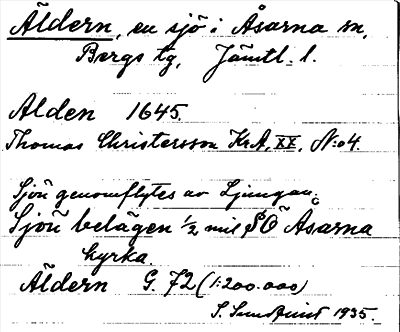 Äldern, en sjö i Åsarna sn,
Bergs tg, Jämtl. l.
Alden 1645.
Thomas Christersson KrA, XX, N:o 4.
Sjön genomflytes av Ljungan.
Sjön belägen 1/2 mil SÖ Åsarna
kyrka.
Äldern G. 72 (1:200.000)
S. Sundquist 1935.